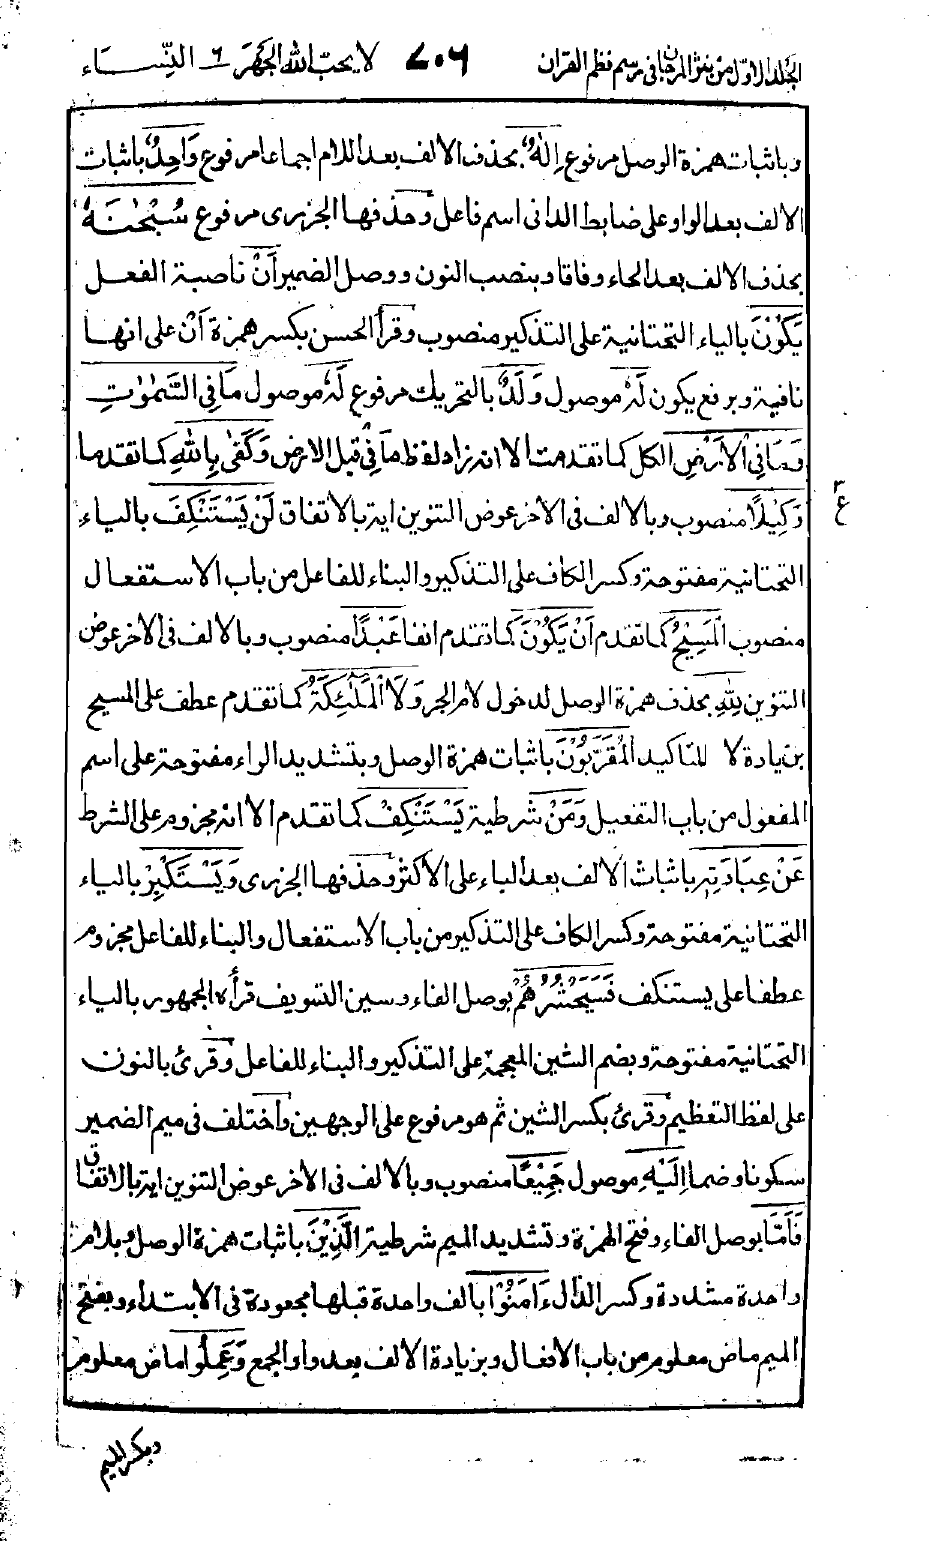 الجلد الاول من نثر المرجان فی رسم نظم القران ٧٠٦ لا یحب الله الجهر ٦ النساء
وباثبات همزة الوصل مرفوع اِلٰهٌ بحذف الالف بعد اللام اجماعا مرفوع وَاحِدٌ باثبات
الالف بعد الواو علی ضابط الدانی اسم فاعل وحذفها الجزری مرفوع سُبْحٰنَهٗ
بحذف الالف بعد الحاء وفاقا وبنصب النون ووصل الضمیر اَنْ ناصبة الفعل
یَّكُوْنَ بالیاء التحتانیة علی التذکیر منصوب وقرأ الحسن بکسر همزة اَنْ علی انها
نافیة وبرفع یکون لَهٗ موصول وَلَدٌ بالتحریك مرفوع لَهٗ موصول مَا فِی السَّمٰوٰتِ
وَمَا فِی الْاَرْضِ الکل کما تقدمت الا انه زاد لفظ ما فی قبل الارض وَكَفٰی بِاللهِ کما تقدما
وَكِیْلًا منصوب وبالالف فی الاخر عوض التنوین ایة بالاتفاق لَنْ یَّسْتَنْكِفَ بالیاء
ع
التحتانیة مفتوحة وکسر الکاف علی التذکیر والبناء للفاعل من باب الاستفعال
منصوب الْمَسِیْحُ کما تقدم اَنْ یَّكُوْنَ کما تقدم انفا عَبْدًا منصوب وبالالف فی الاخر عوض
التنوین لِلّٰهِ بحذف همزة الوصل لدخول لام الجر وَلَا الْمَلٰٓئِكَةُ کما تقدم عطف علی المسیح
بزیادة لا للتاکید الْمُقَرَّبُوْنَ باثبات همزة الوصل وبتشدید الراء مفتوحة علی اسم
المفعول من باب التفعیل وَمَنْ شرطیة یَّسْتَنْكِفْ کما تقدم الا انه مجزوم علی الشرط
عَنْ عِبَادَتِهٖ باثبات الالف بعد الباء علی الاکثر وحذفها الجزری وَیَسْتَكْبِرْ بالیاء
التحتانیة مفتوحة وکسر الکاف علی التذکیر من باب الاستفعال والبناء للفاعل مجزوم
عطفا علی یستنکف فَسَیَحْشُرُهُمْ بوصل الفاء وسین التسویف قرأه الجمهور بالیاء
التحتانیة مفتوحة وبضم الشین المعجمة علی التذکیر والبناء للفاعل وقرئ بالنون
علی لفظ التعظیم وقرئ بکسر الشین ثم هو مرفوع علی الوجهین واختلف فی میم الضمیر
سکونا وضما اِلَیْهِ موصول جَمِیْعًا منصوب وبالالف فی الاخر عوض التنوین ایة بالاتفاق
فَاَمَّا بوصل الفاء وفتح الهمزة وتشدید المیم شرطیة الَّذِیْنَ باثبات همزة الوصل وبلام
واحدة مشددة وکسر الذال ءَامَنُوْا بالف واحدة قبلها مجعودة فی الابتداء وبفتح
المیم ماض معلوم من باب الافعال وبزیادة الالف بعد واو الجمع وَعَمِلُوا ماض معلوم
وبکسر المیم